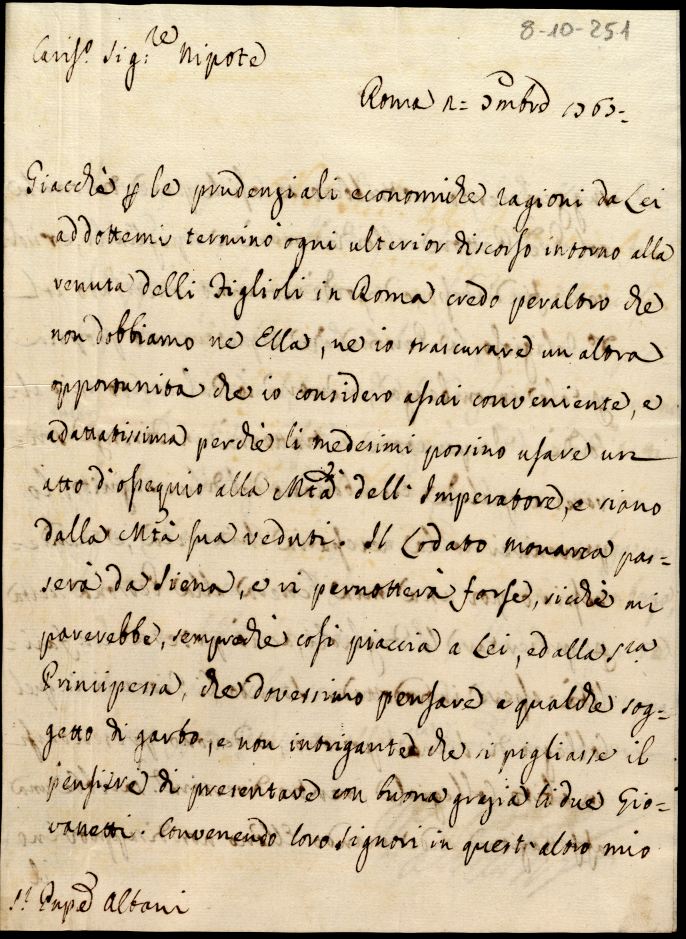 8-10-251
Cariss.o Sig.re Nipote
Roma 2= Xmbre 1763=
Giacchè p le prudenziali economiche ragioni da Lei
addottemi termino ogni ulterior discorso intorno alla
venuta delli Figlioli in Roma credo peraltro che
non dobbiamo ne Ella, ne io trascurare un altra
opportunità che io considero assai conveniente, e
adattatissima perchè li medesimi possino usare un
atto d'ossequio alla Mtà dell' Imperatore, e siano
dalla Mtà sua veduti. Il Lodato monarca pas=
serà da Siena, e vi pernotterà forse, sicchè mi
parerebbe, sempreché così piaccia a Lei, ed alla Sra
Principessa, che dovessimo pensare a qualche sog=
getto di garbo, e non intrigante che si pigliasse il
pensiere di presentare con buona grazia li due Gio=
vanetti. Convenendo loro Signori in quest altro mio
Albani